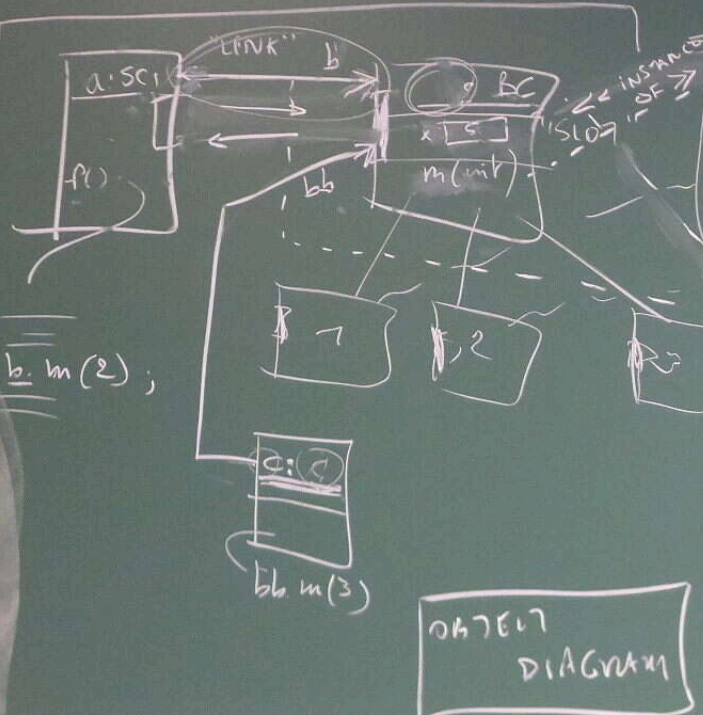 "LINK"
b
a:SC1
: BC
<< INSTANCE
OF >>
"SLOT"
x 5
f()
bb
m(int)
1
2
b.m(2);
c:C
bb m(3)
OBJECT
DIAGRAM